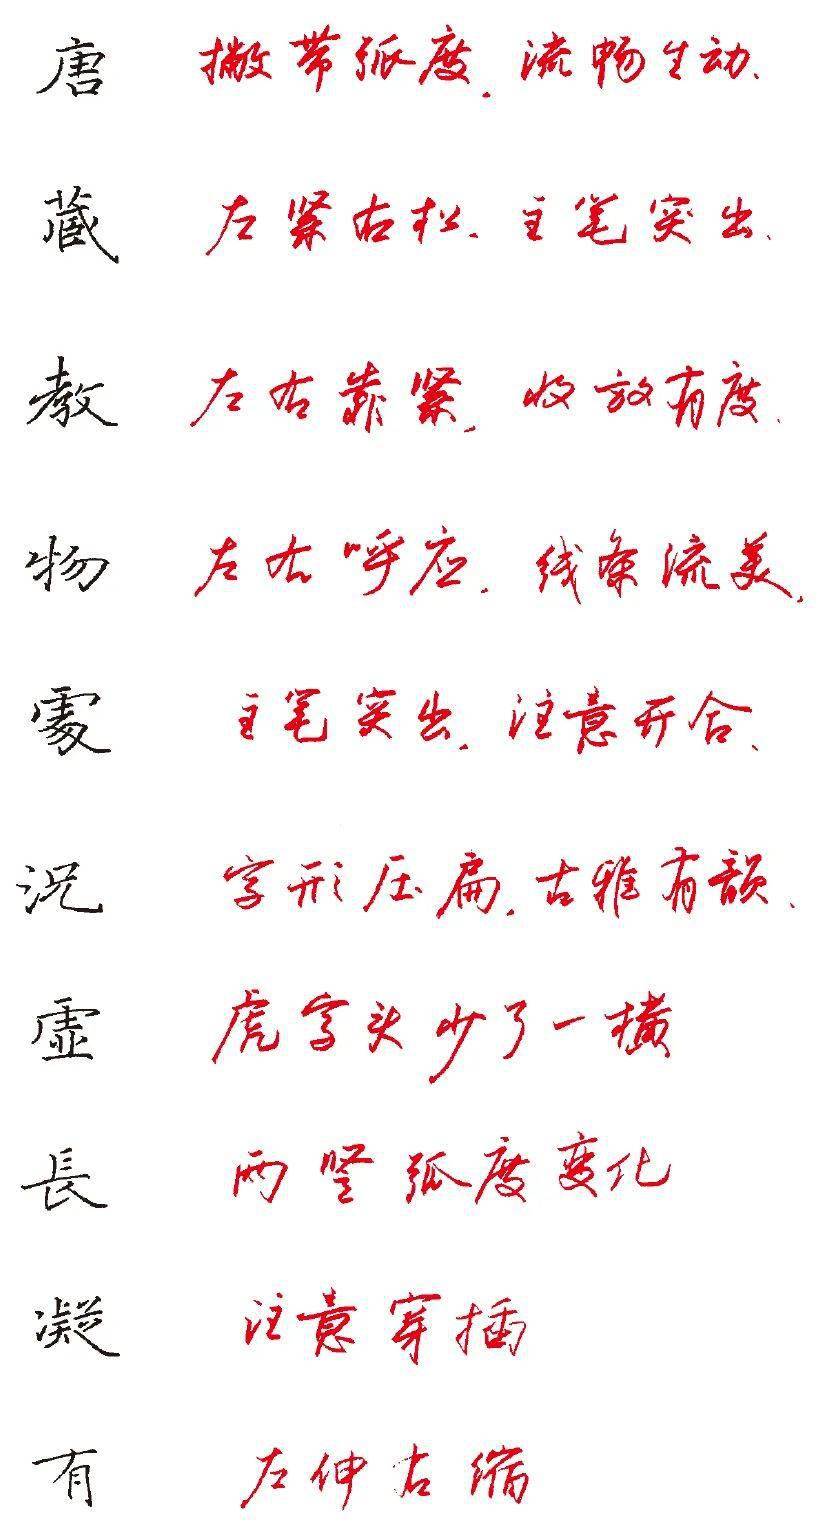 唐 撇带弧度,流畅生动、
藏 左紧右松、主笔突出、
教 左右靠紧,收放有度、
物 左右呼应,线条流美,
處 主笔突出,注意开合、
况 字形压扁,古雅有韵、
虚 虎字头少了一横
長 两竖弧度变化
凝 注意穿插
有 左伸右缩